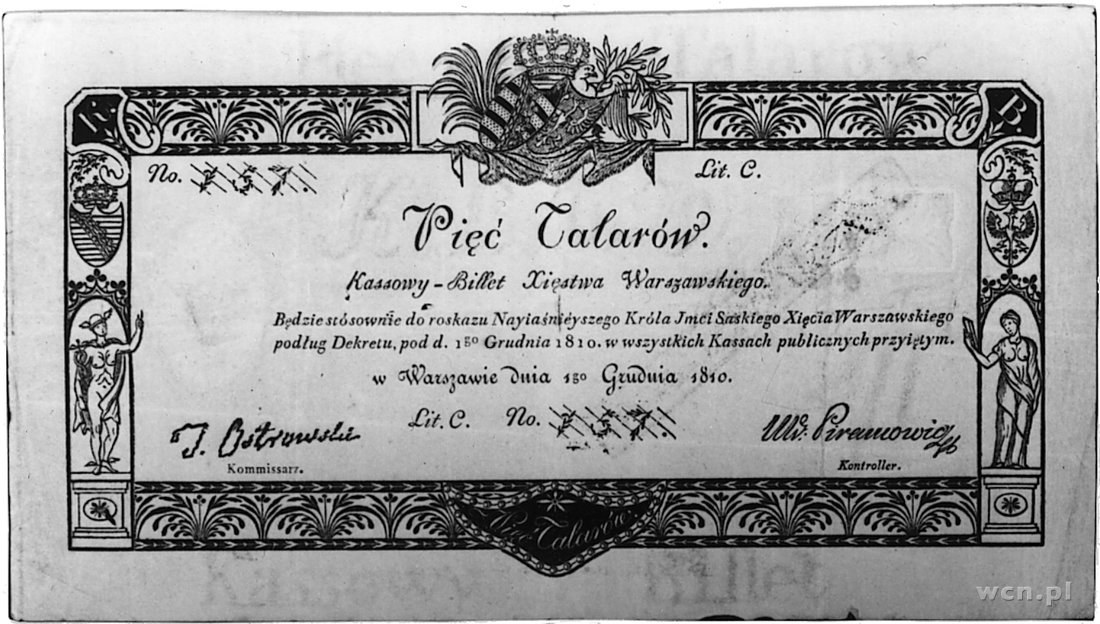 K. B.
No. 737. Lit. C.
Pięć Talarów.
Kassowy-Billet Xięstwa Warszawskiego.
Będzie stósownie do roskazu Nayiaśnieyszego Króla Jmci Saskiego Xięcia Warszawskiego
podług Dekretu, pod d. 1go Grudnia 1810. w wszystkich Kassach publicznych przyiętym.
w Warszawie dnia 1go Grudnia 1810.
Lit. C. No. 737.
J. Ostrowski
Kommissarz. Kontroller.
Talarów
wcn.pl